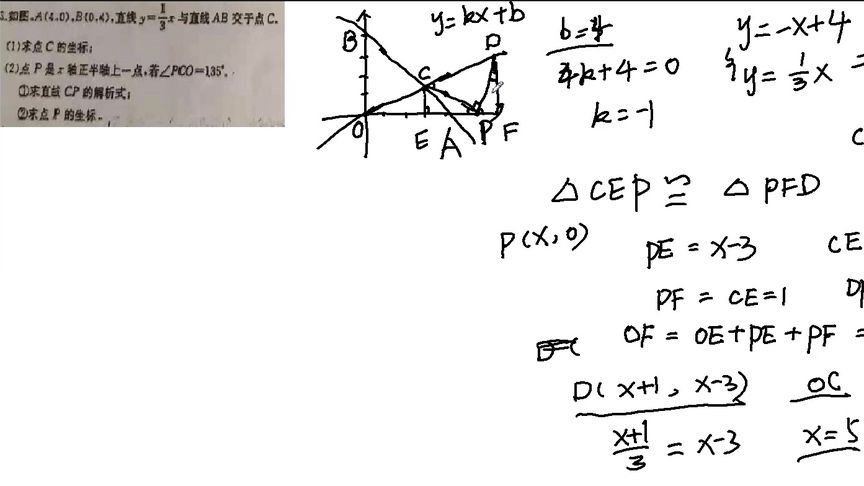 5.如图,A(4,0),B(0,4),直线y=1/3x与直线AB交于点C.
(1)求点C的坐标;
(2)点P是x轴正半轴上一点,若∠PCO=135°.
①求直线CP的解析式;
②求点P的坐标.
y=kx+b
B
D
C
O
E A P F
b=4
4k+4=0
k=-1
y=-x+4
{y=1/3x =
C
△CEP≌△PFD
P(x,0)
PE=x-3 CE
PF=CE=1
OF=OE+PE+PF=
D(x+1,x-3) OC
x+1/3=x-3 x=5